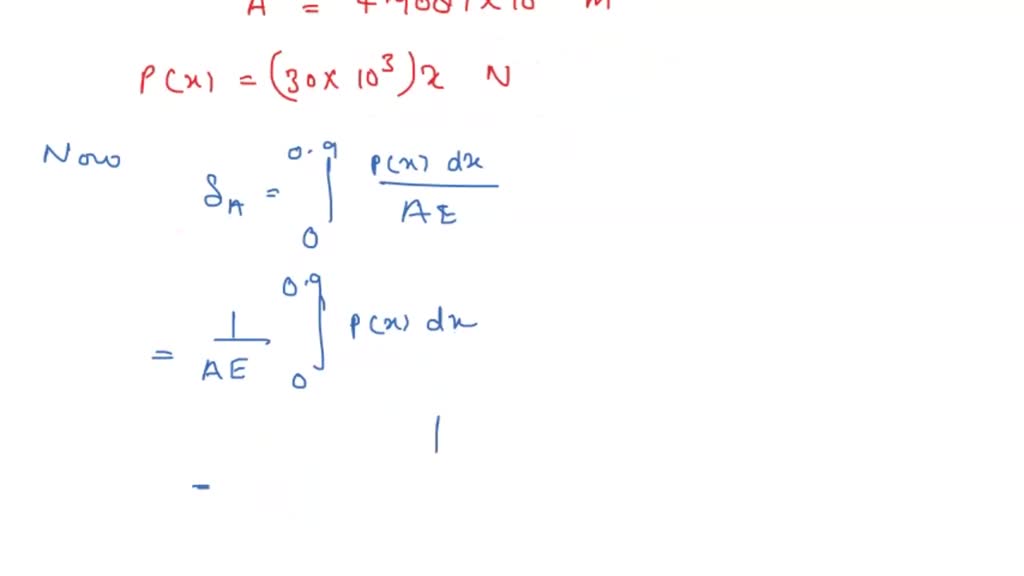 P(x) = (30 × 10³) x N
Now
δA = ∫₀^0.9 P(x) dx / AE
= 1 / AE ∫₀^0.9 P(x) dx
1
=